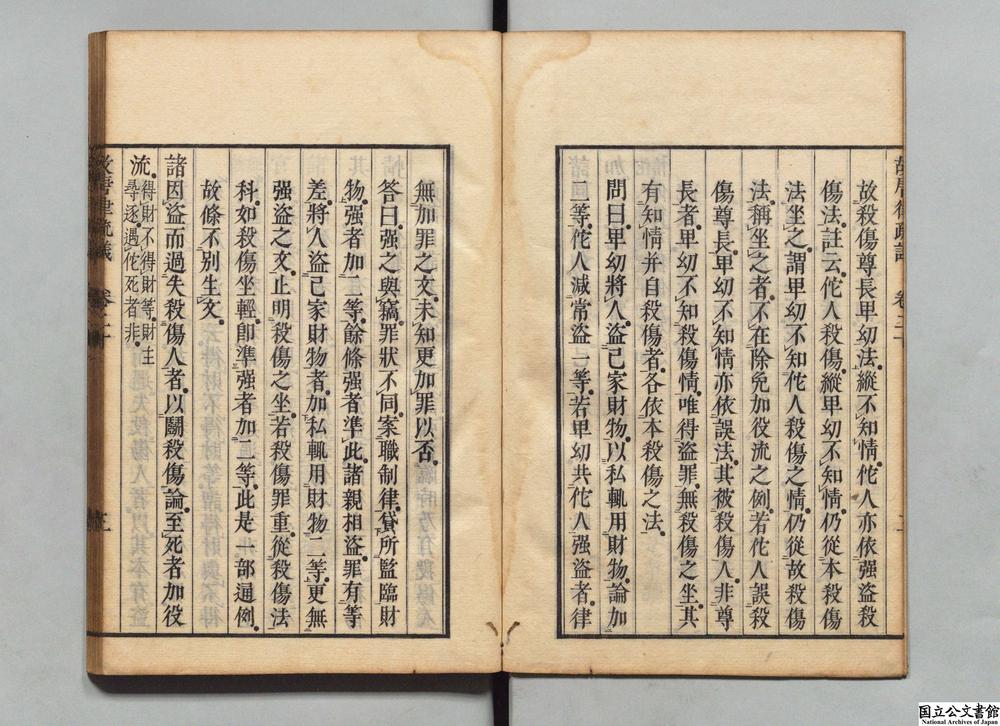 故殺傷尊長卑幼法。縱不知情。佗人亦依强盜殺
傷法。註云。佗人殺傷。縱卑幼不知情。仍從本殺傷
法坐之。謂卑幼不知佗人殺傷之情。仍從故殺傷
法。稱坐之者。不在除免加役流之例。若佗人誤殺
傷尊長。卑幼不知情。亦依誤法。其被殺傷人。非尊
長者。卑幼不知殺傷情。唯得盜罪。無殺傷之坐。其
有知情并自殺傷者。各依本殺傷之法。
問曰。卑幼將人盜己家財物。以私輒用財物論加
二等。佗人減常盜一等。若卑幼共佗人强盜者。律
無加罪之文。未知更加罪以否。
答曰。强之與竊。罪狀不同。案職制律。貸所監臨財
物。强者加二等。餘條强者準此。諸親相盜。罪有等
差。將人盜己家財物者。加私輒用財物二等。更無
强盜之文。止明殺傷之坐。若殺傷罪重。從殺傷法
科。如殺傷坐輕。卽準强者加二等。此是一部通例。
故條不別生文。
諸因盜而過失殺傷人者。以鬭殺傷論。至死者加役
流。得財不得財等。財主
尋逐遇佗死者非。
故唐律疏議 卷二十
国立公文書館
National Archives of Japan